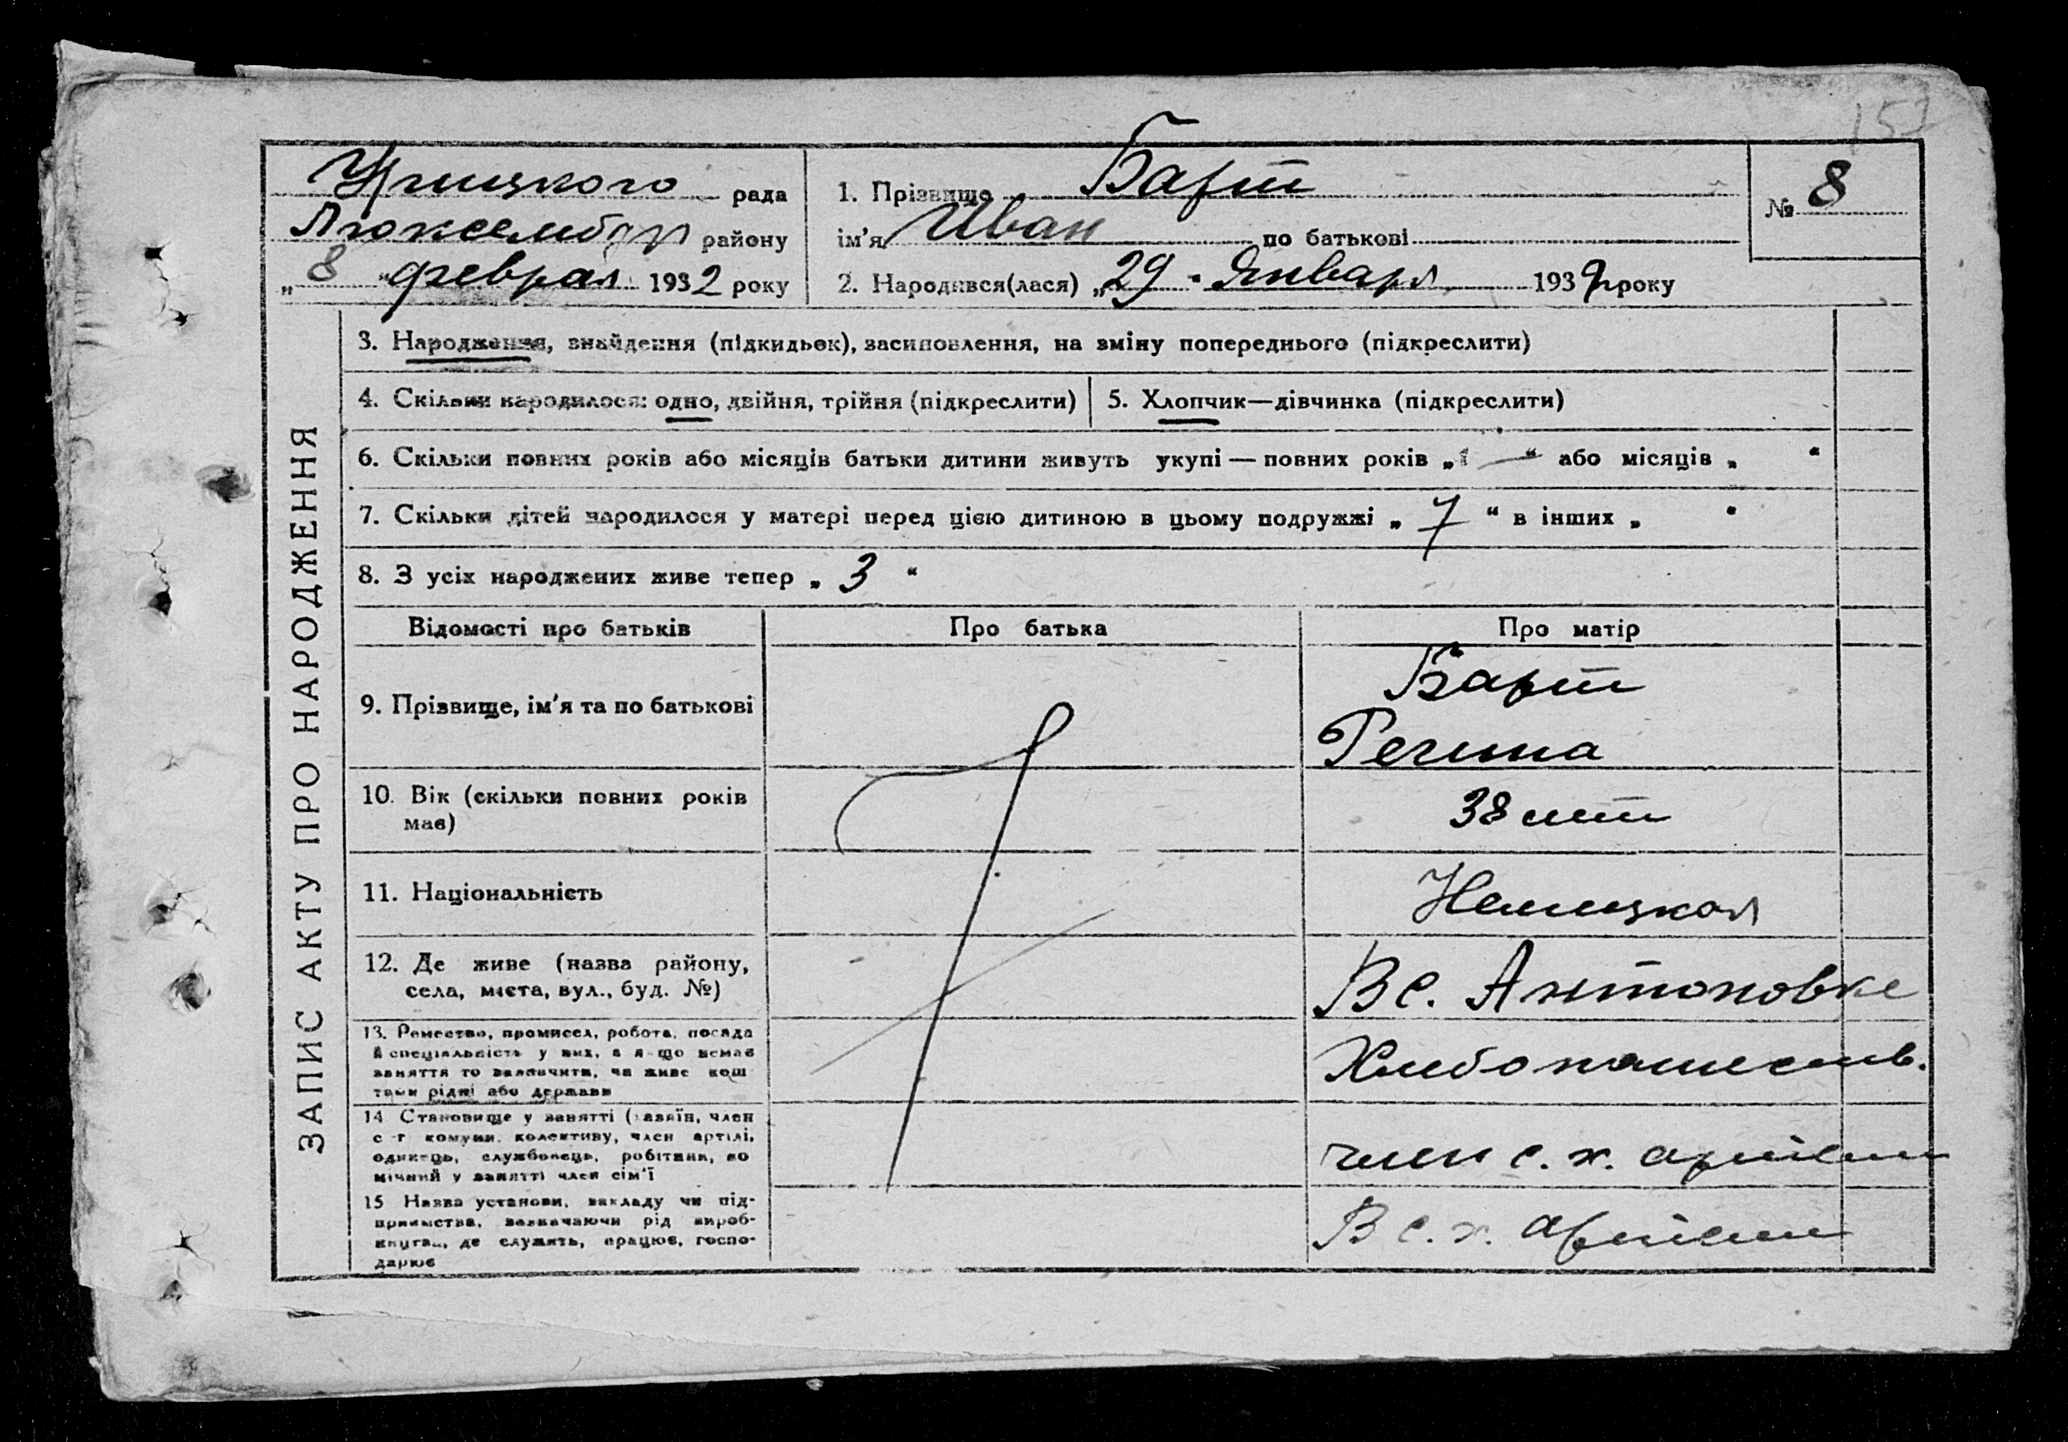 157
Урицкого рада
Люксембур району
„ 8 “ феврал 1932 року
1. Прізвище Барт
ім'я Иван по батькові
2. Народився(лася) „ 29 “ Января 1932 року
№ 8
ЗАПИС АКТУ ПРО НАРОДЖЕННЯ
3. Народження, знайдення (підкидьок), засиновлення, на зміну попереднього (підкреслити)
4. Скільки народилося: одно, двійня, трійня (підкреслити)
5. Хлопчик—дівчинка (підкреслити)
6. Скільки повних років або місяців батьки дитини живуть укупі — повних років „ — “ або місяців „ “
7. Скільки дітей народилося у матері перед цією дитиною в цьому подружжі „ 7 “ в інших „ “
8. З усіх народжених живе тепер „ 3 “
Відомості про батьків Про батька Про матір
9. Прізвище, ім'я та по батькові
Барт
Регина
10. Вік (скільки повних років
має)
38 лет
11. Національність
Немецкая
12. Де живе (назва району,
села, міста, вул., буд. №)
В с. Антоновке
13. Ремество, промисел, робота, посада
й спеціяльність у них, а якщо немає
заняття то зазначити, чи живе кош
тами рідні або держави
Хлебопашеств.
14 Становище у занятті (хазяїн, член
с-г комуни, колективу, член артілі,
одинець, службовець, робітник, по
мічний у занятті член сім'ї
член с. х. артели
15 Назва установи, закладу чи під-
приємства, зазначаючи рід вироб-
ництва, де служить, працює, госпо-
дарює
В с. х. артели